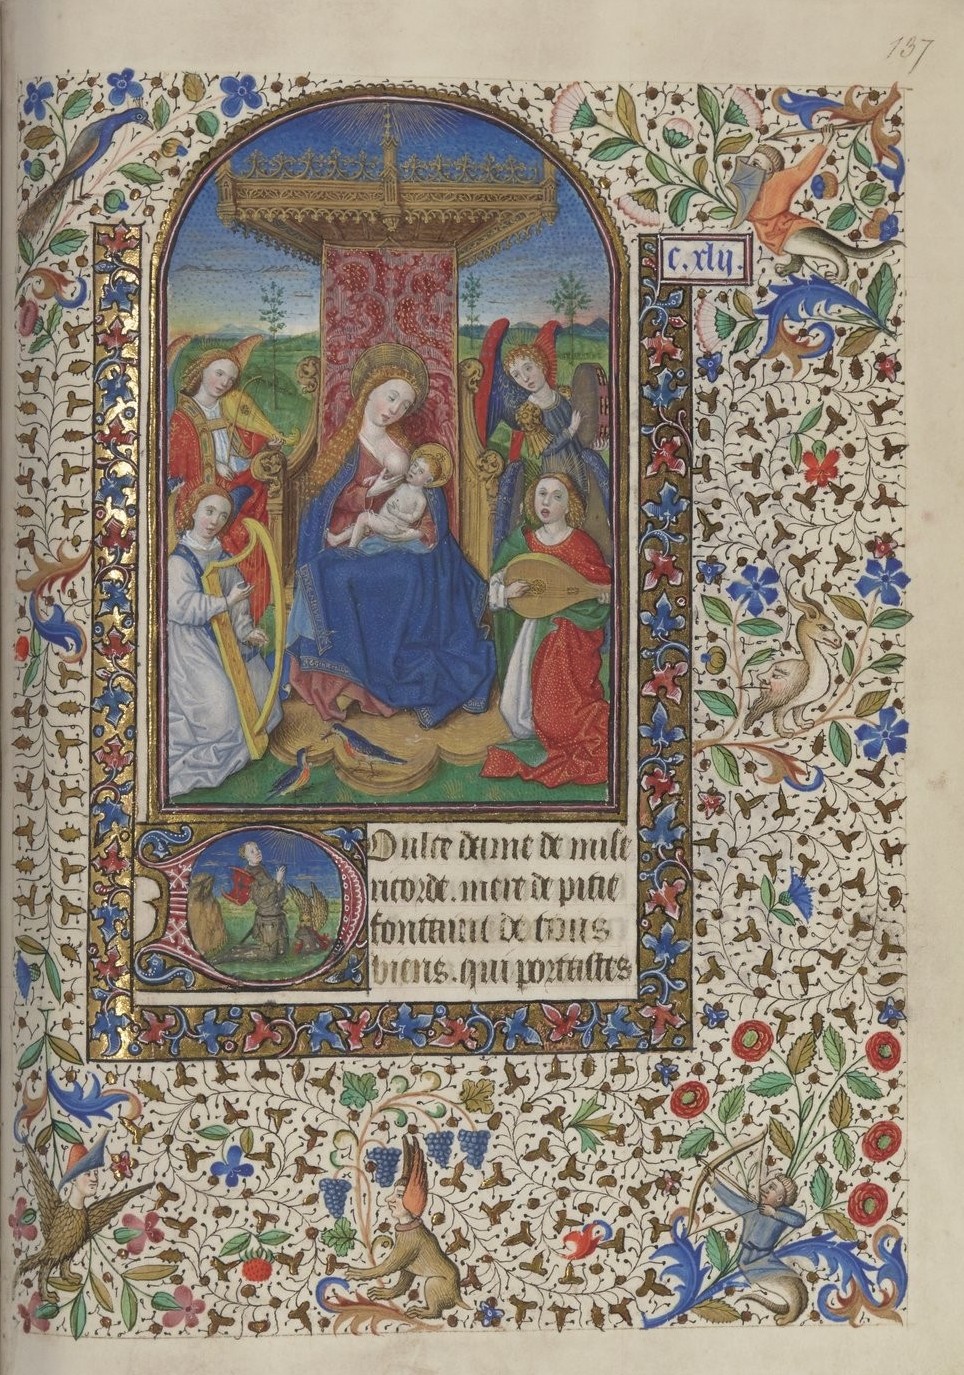 137
c. xlij.
DOulce dame de mise
ricorde. mere de pitie
fontaine de tous
biens. qui portastes